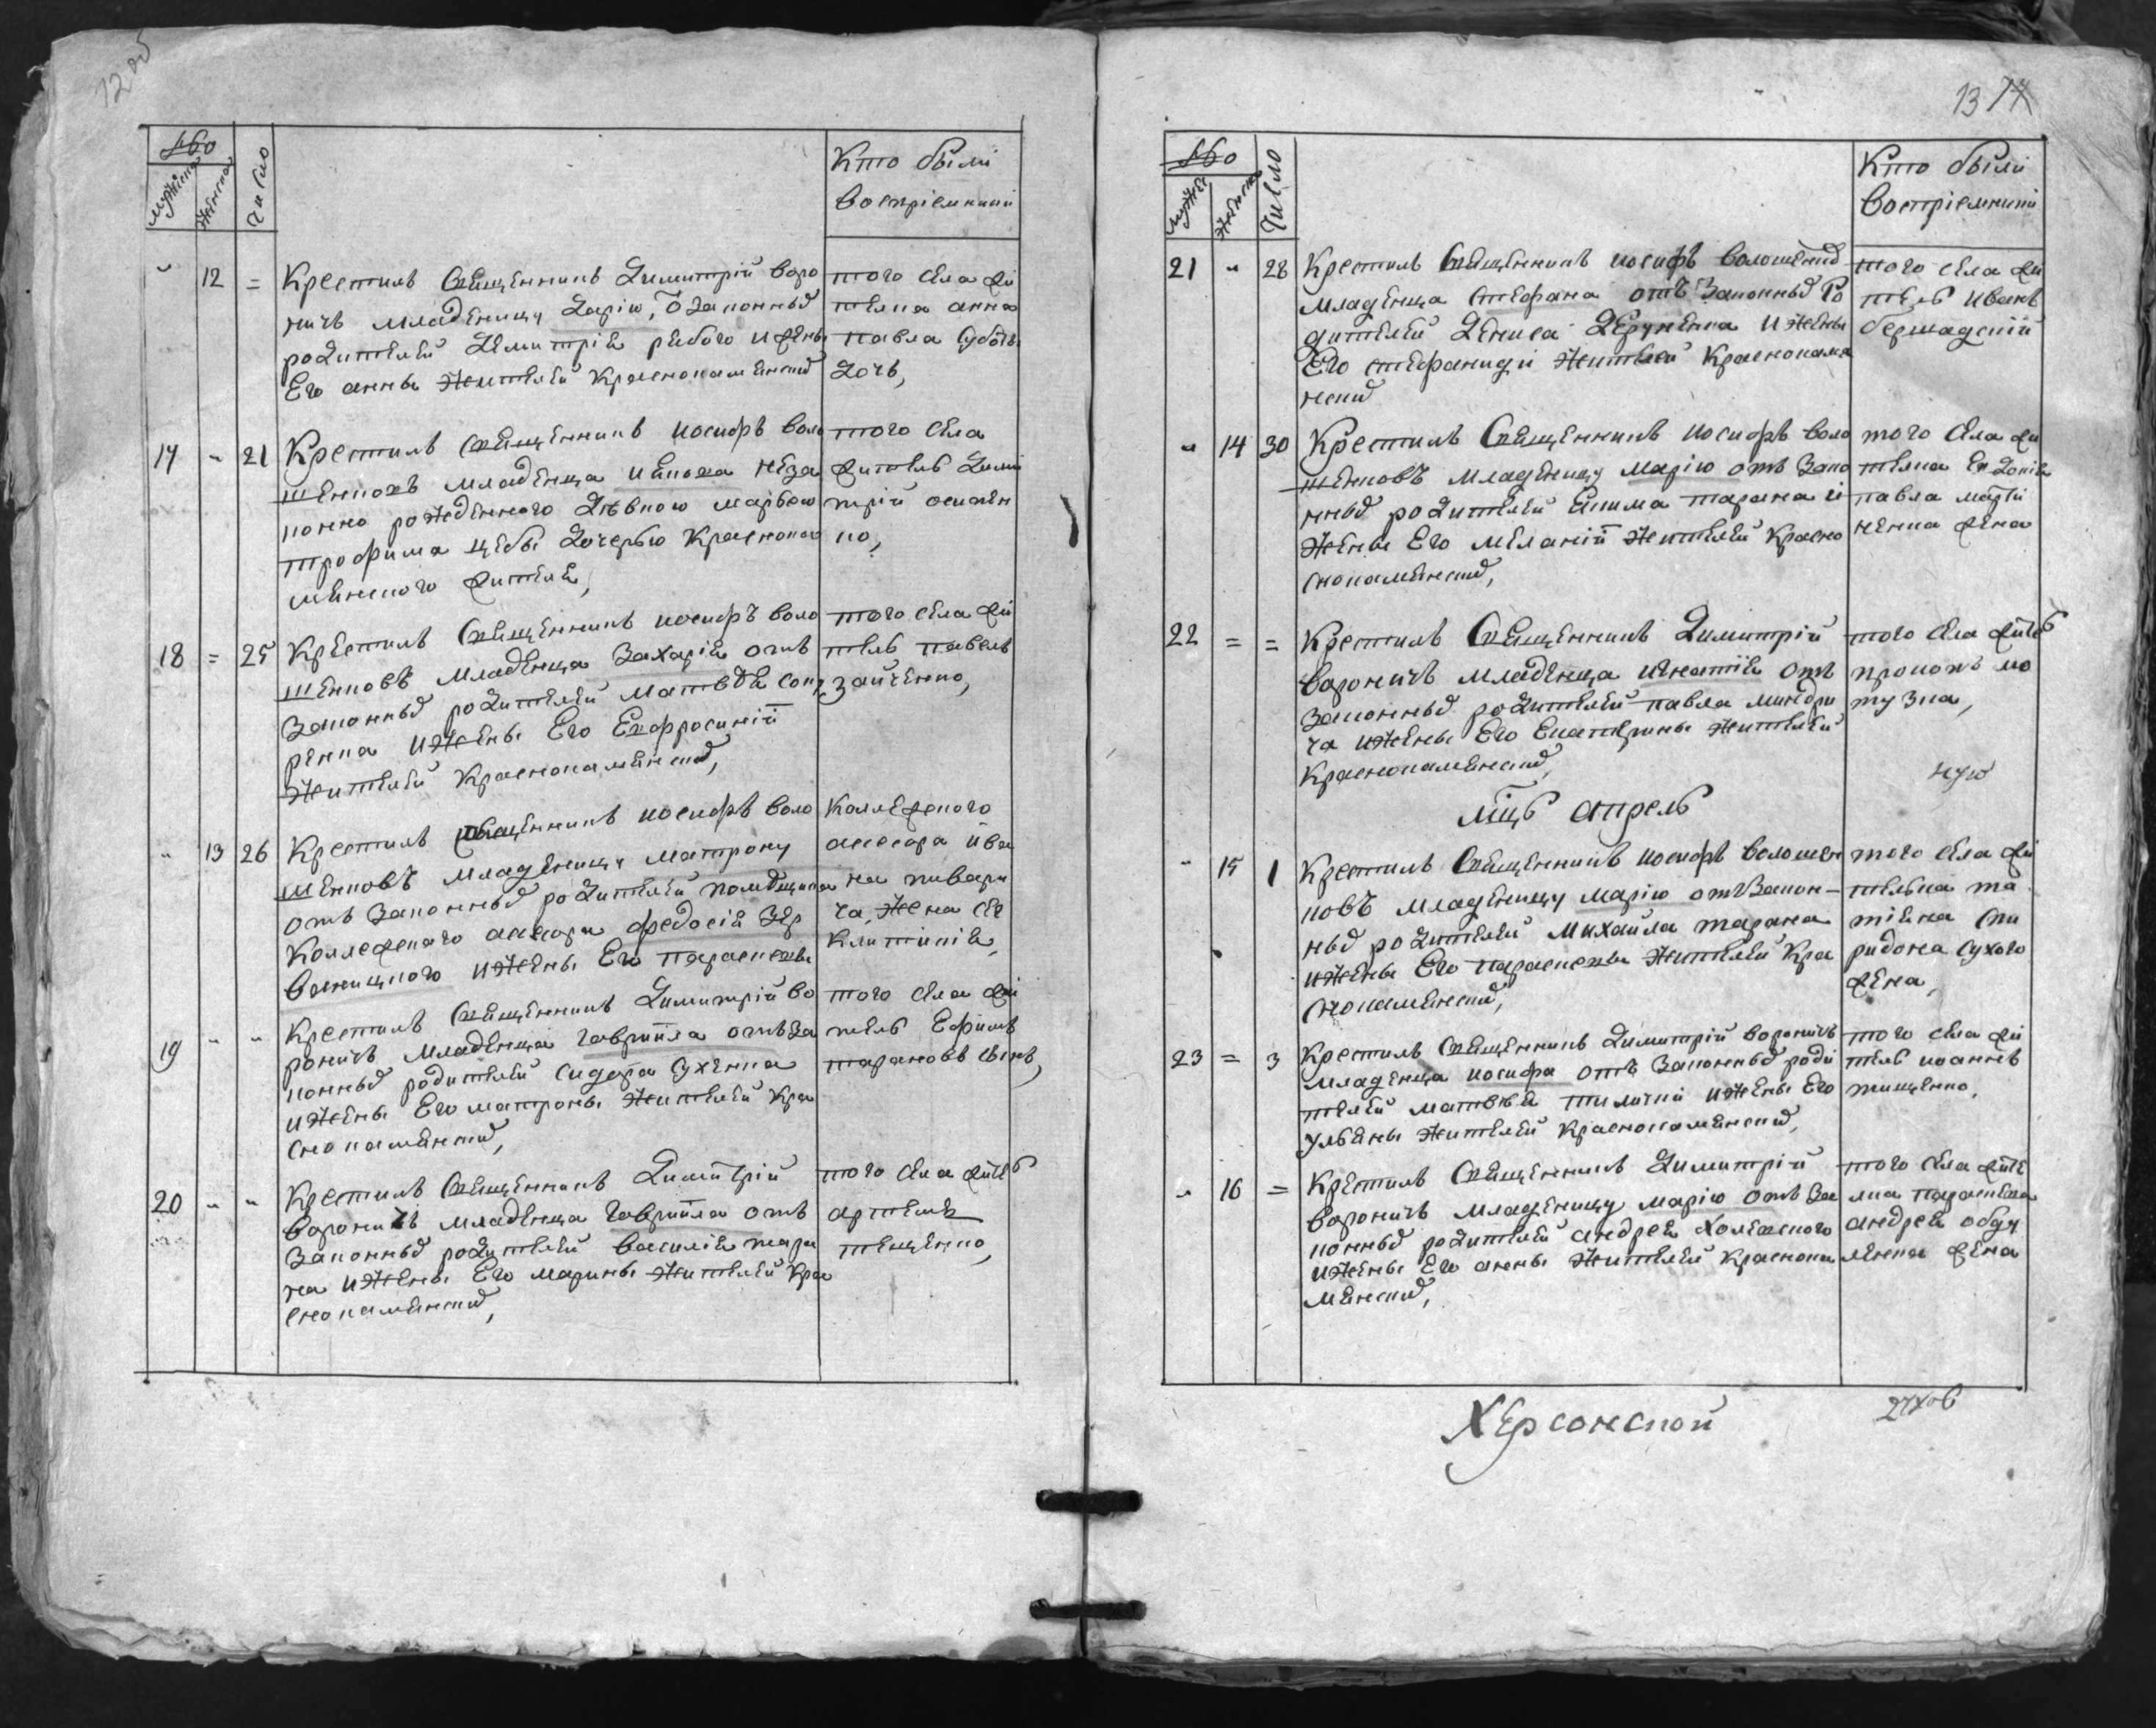 12об
Число
Кто были
воспріемники
12 = Крестилъ Священникъ Димитрій Воро
ничъ младеницу Дарію, ѿ законныхъ
родителей Димитрія рибого и жены
Его анны жителей Краснокаменскихъ
того села жи
телка анна
павла
дочь,
17 " 21 Крестилъ Священникъ иосифъ воло
шеновъ младенца неза
конно рожденного дѣвкою марѳою
трофима цебы дочерью Краснока
менского жителя,
того села
житель Дими
трій
18 = 25 Крестилъ Священникъ иосифъ воло
шеновъ младенца Захарія отъ
законныхъ родителей матвѣя
ренка и жены Его Ефросиніи
жителей Краснокаменскихъ,
того села жи
тель павелъ
зайченко,
" 13 26 Крестилъ Священникъ иосифъ воло
шеновъ младеницу матрону
отъ законныхъ родителей помѣщика
Коллежскаго ассесора федосія
и жены Его параскевы
Коллежского
ассесора ива
на пивари
ча, жена
19 " " Крестилъ Священникъ Димитрій во
роничъ младенца гавріила отъ за
конныхъ родителей сидора
и жены Его матроны жителей Кра
снокаменскихъ,
того села жи
тель Ефимъ
тарановъ сынъ,
20 " " Крестилъ Священникъ Димитрій
вороничъ младенца гавріила отъ
законныхъ родителей василія тара
на и жены Его марины жителей Кра
снокаменскихъ,
того села житель
артемъ
тищенко,
13
Число
Кто были
воспріемники
21 " 28 Крестилъ Священникъ иосифъ волошеновъ
младенца стефана отъ законныхъ Ро
дителей Дениса и жены
Его стефаниди жителей Краснокаме
нскихъ
того села жи
тель иванъ
бершадскій
" 14 30 Крестилъ Священникъ иосифъ воло
шеновъ младеницу марію отъ зако
нныхъ родителей Екима тарана и
жены Его меланіи жителей Красно
снокаменскихъ,
того села жи
телка Евдокія
павла марти
ненка жена
22 = = Крестилъ Священникъ Димитрій
вороничъ младенца игнатія отъ
законныхъ родителей павла
ча и жены Его Екатерины жителей
Краснокаменскихъ,
того села житель
прокопъ ко
тузка,
мцъ апрель
" 15 1 Крестилъ Священникъ иосифъ волошен
новъ младеницу марію отъ закон-
ныхъ родителей михаила тарана
и жены Его параскевы жителей Кра
снокаменскихъ,
того села жи
телька та
тіяна спи
ридона сухого
жена,
23 = 3 Крестилъ Священникъ Димитрій вороничъ
младенца иосифа отъ законныхъ роди
телей матвѣя и жены Его
ульяны жителей Краснокаменскихъ,
того села жи
тель иоаннъ
тищенко,
" 16 = Крестилъ Священникъ Димитрій
вороничъ младеницу марію отъ за
конныхъ родителей андрея
и жены Его анны жителей Краснока
менскихъ,
того села жите
лка параскева
андрея
жена
Херсонской